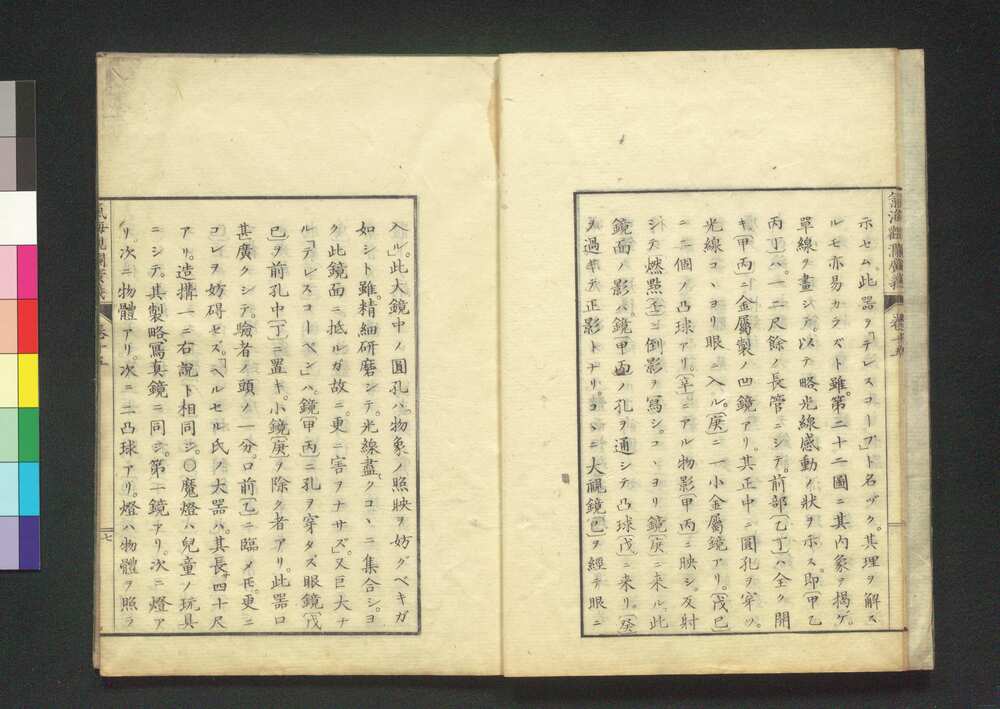 示セム。此器ヲ「テレスコープ」ト名ヅク。其理ヲ解ス
ルモ亦易カラズト雖。第二十二圖ニ其内象ヲ掲ゲ。
單線ヲ畫シテ。以テ略光線感動ノ状ヲ示ス。即〔甲乙
丙丁〕ハ。一二尺餘ノ長管ニシテ。前部〔乙丁〕ハ全ク開
キ。〔甲丙〕ニ金屬製ノ凹鏡アリ。其正中ニ圓孔ヲ穿ツ。
光線コヽヨリ眼ニ入ル。〔庚〕ニ一小金屬鏡アリ。〔戊巳〕
ニ二個ノ凸球アリ。〔辛〕ニアル物影〔甲丙〕ニ映シ。反射
シテ燃點〔壬〕ニ倒影ヲ寫シ。コヽヨリ鏡〔庚〕ニ來ル。此
鏡面ノ影ハ。鏡〔甲丙〕ノ孔ヲ通シテ凸球〔戊〕ニ来リ。〔癸〕
ヲ過キテ正影トナリ。コヽニ大視鏡〔巳〕ヲ經テ眼ニ
氣海觀瀾廣義
卷十五
入ル。」此大鏡中ノ圓孔ハ。物象ノ照映ヲ妨グベキガ
如シト雖。精細研磨シテ。光線盡クコヽニ集合シ。ヨ
ク此鏡面ニ抵ルガ故ニ。更ニ害ヲナサズ。」又巨大ナ
ル「テレスコーペン」ハ。鏡〔甲丙〕ニ孔ヲ穿タズ。眼鏡〔戊
巳〕ヲ前孔中〔丁〕ニ置キ。小鏡〔庚〕ヲ除ク者アリ。此器口
甚廣クシテ。驗者ノ頭ノ一分。口前〔乙〕ニ臨メ𪜈。更ニ
コレヲ妨碍セズ。「ヘルセル氏ノ大器ハ。其長サ四十尺
アリ。造搆一ニ右説ト相同シ。○魔燈ハ兒童ノ玩具
ニシテ。其製略寫真鏡ニ同ジ。第一鏡アリ。次ニ燈ア
リ。次ニ物體アリ。次ニ二凸球アリ。燈ハ物體ヲ照ラ
氣海觀瀾廣義
卷十五
七